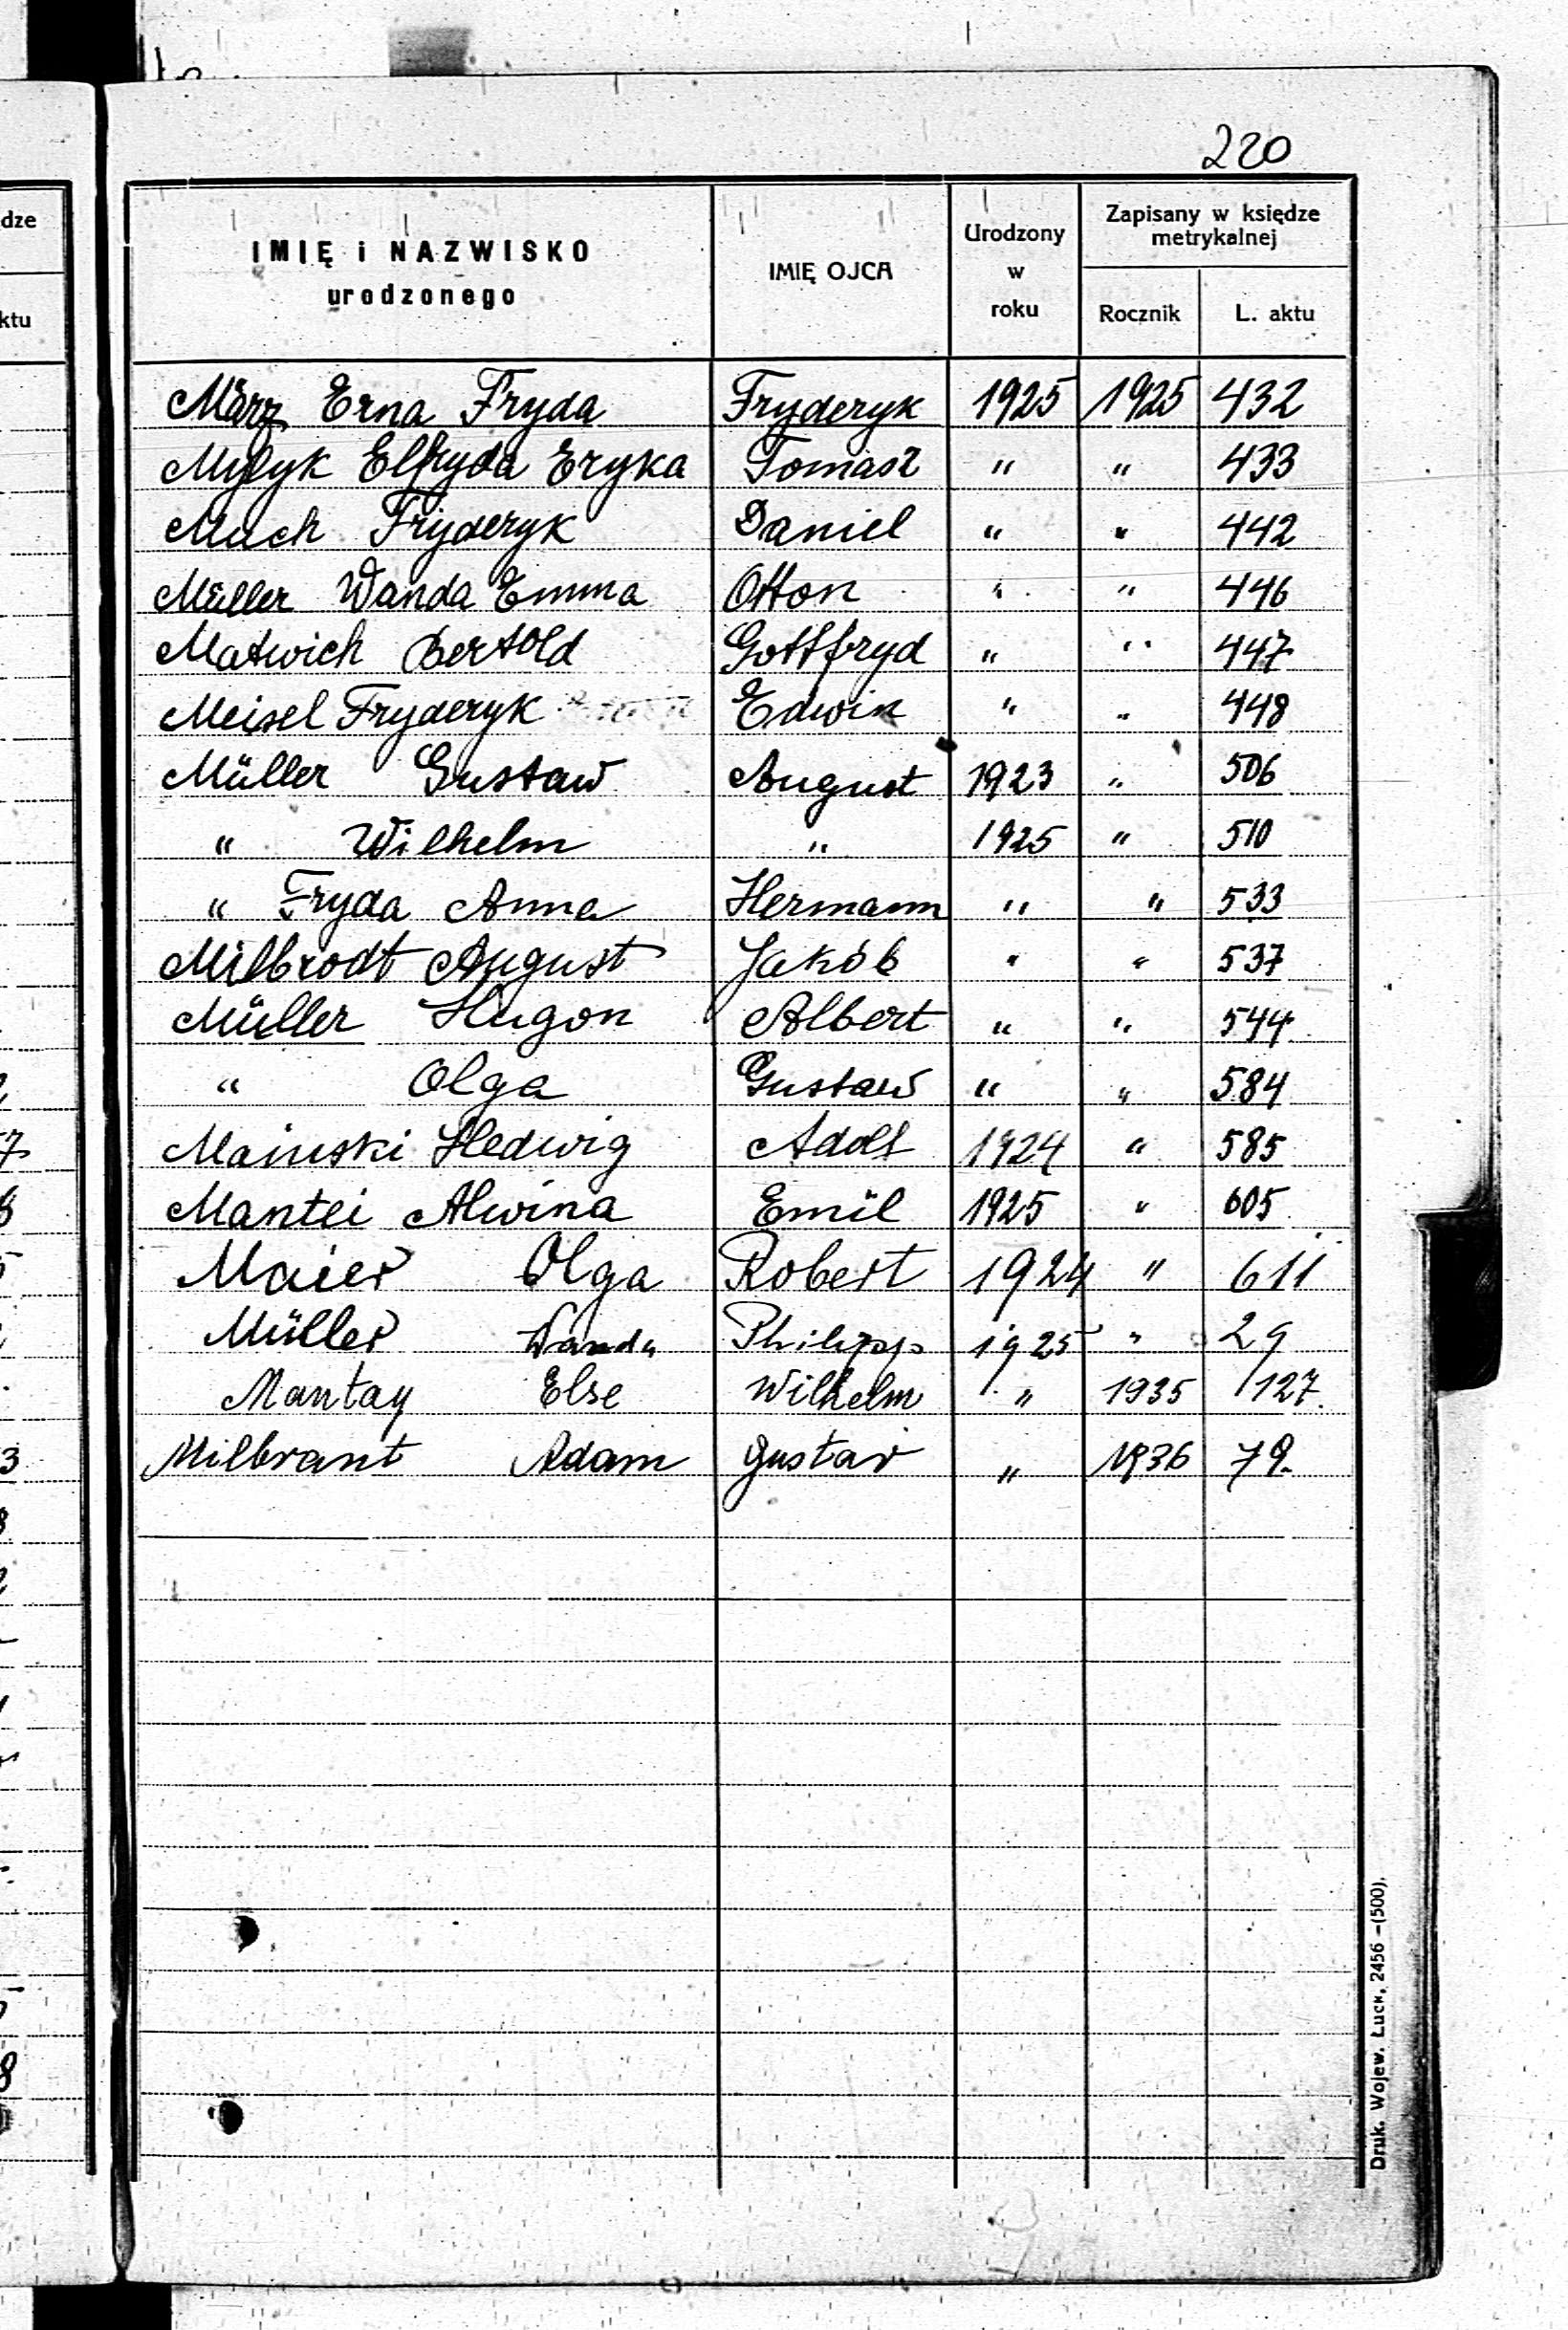 220
IMIĘ i NAZWISKO urodzonego
IMIĘ OJCA
Urodzony w roku
Zapisany w księdze metrykalnej
Rocznik
L. aktu
März Erna Fryda Fryderyk 1925 1925 432
Elfryda Eryka Tomasz " " 433
Much Fryderyk Daniel " " 442
Müller Wanda Emma Otton " " 446
Matwich Bertold Gottfryd " " 447
Meisel Fryderyk Edwin " " 448
Müller Gustaw August 1923 " 506
" Wilhelm " 1925 " 510
" Fryda Anna Hermann " " 533
Milbrodt August Jakób " " 537
Müller Hugon Albert " " 544
" Olga Gustaw " " 584
Hedwig Adolf 1924 " 585
Mantei Alwina Emil 1925 " 605
Maier Olga Robert 1924 " 611
Müller Wanda Philipp 1925 " 29
Mantay Else Wilhelm " 1935 127
Milbrant Adam Gustav " 1936 79
Druk. Wojew. Łuck, 2456 –(500).
dze
ktu